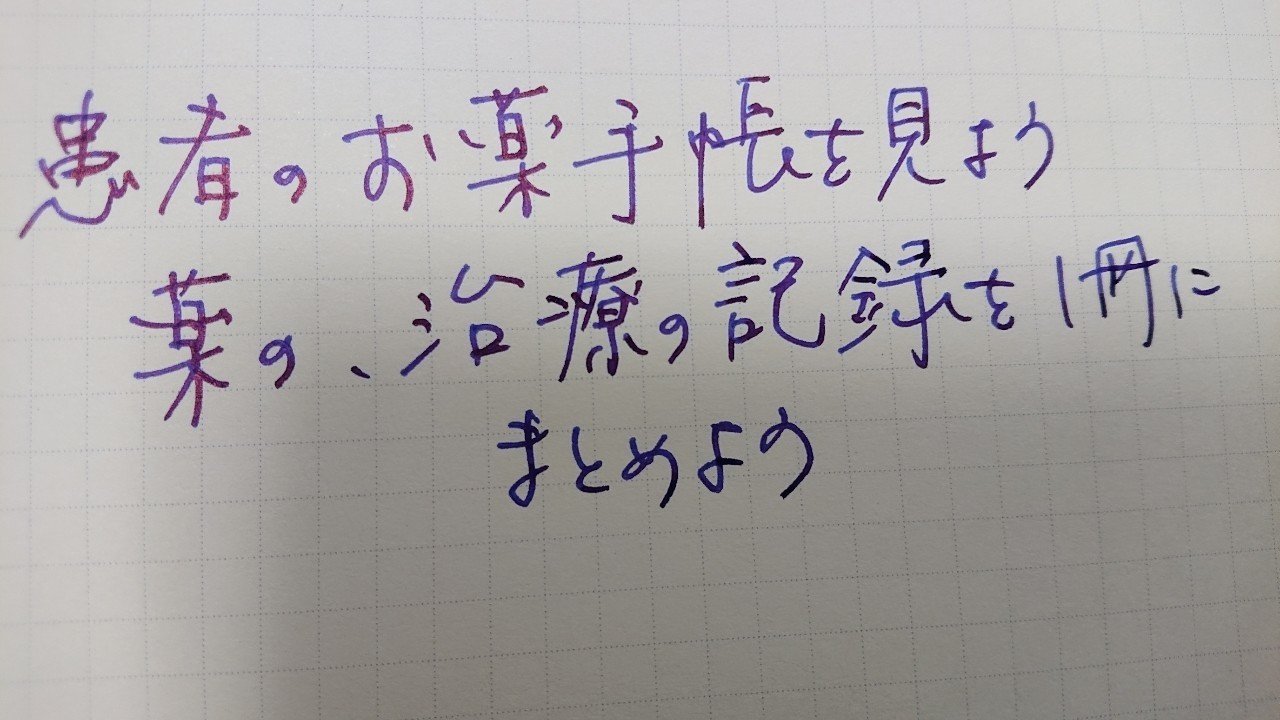 患者のお薬手帳を見よう
薬の、治療の記録を1冊に
まとめよう